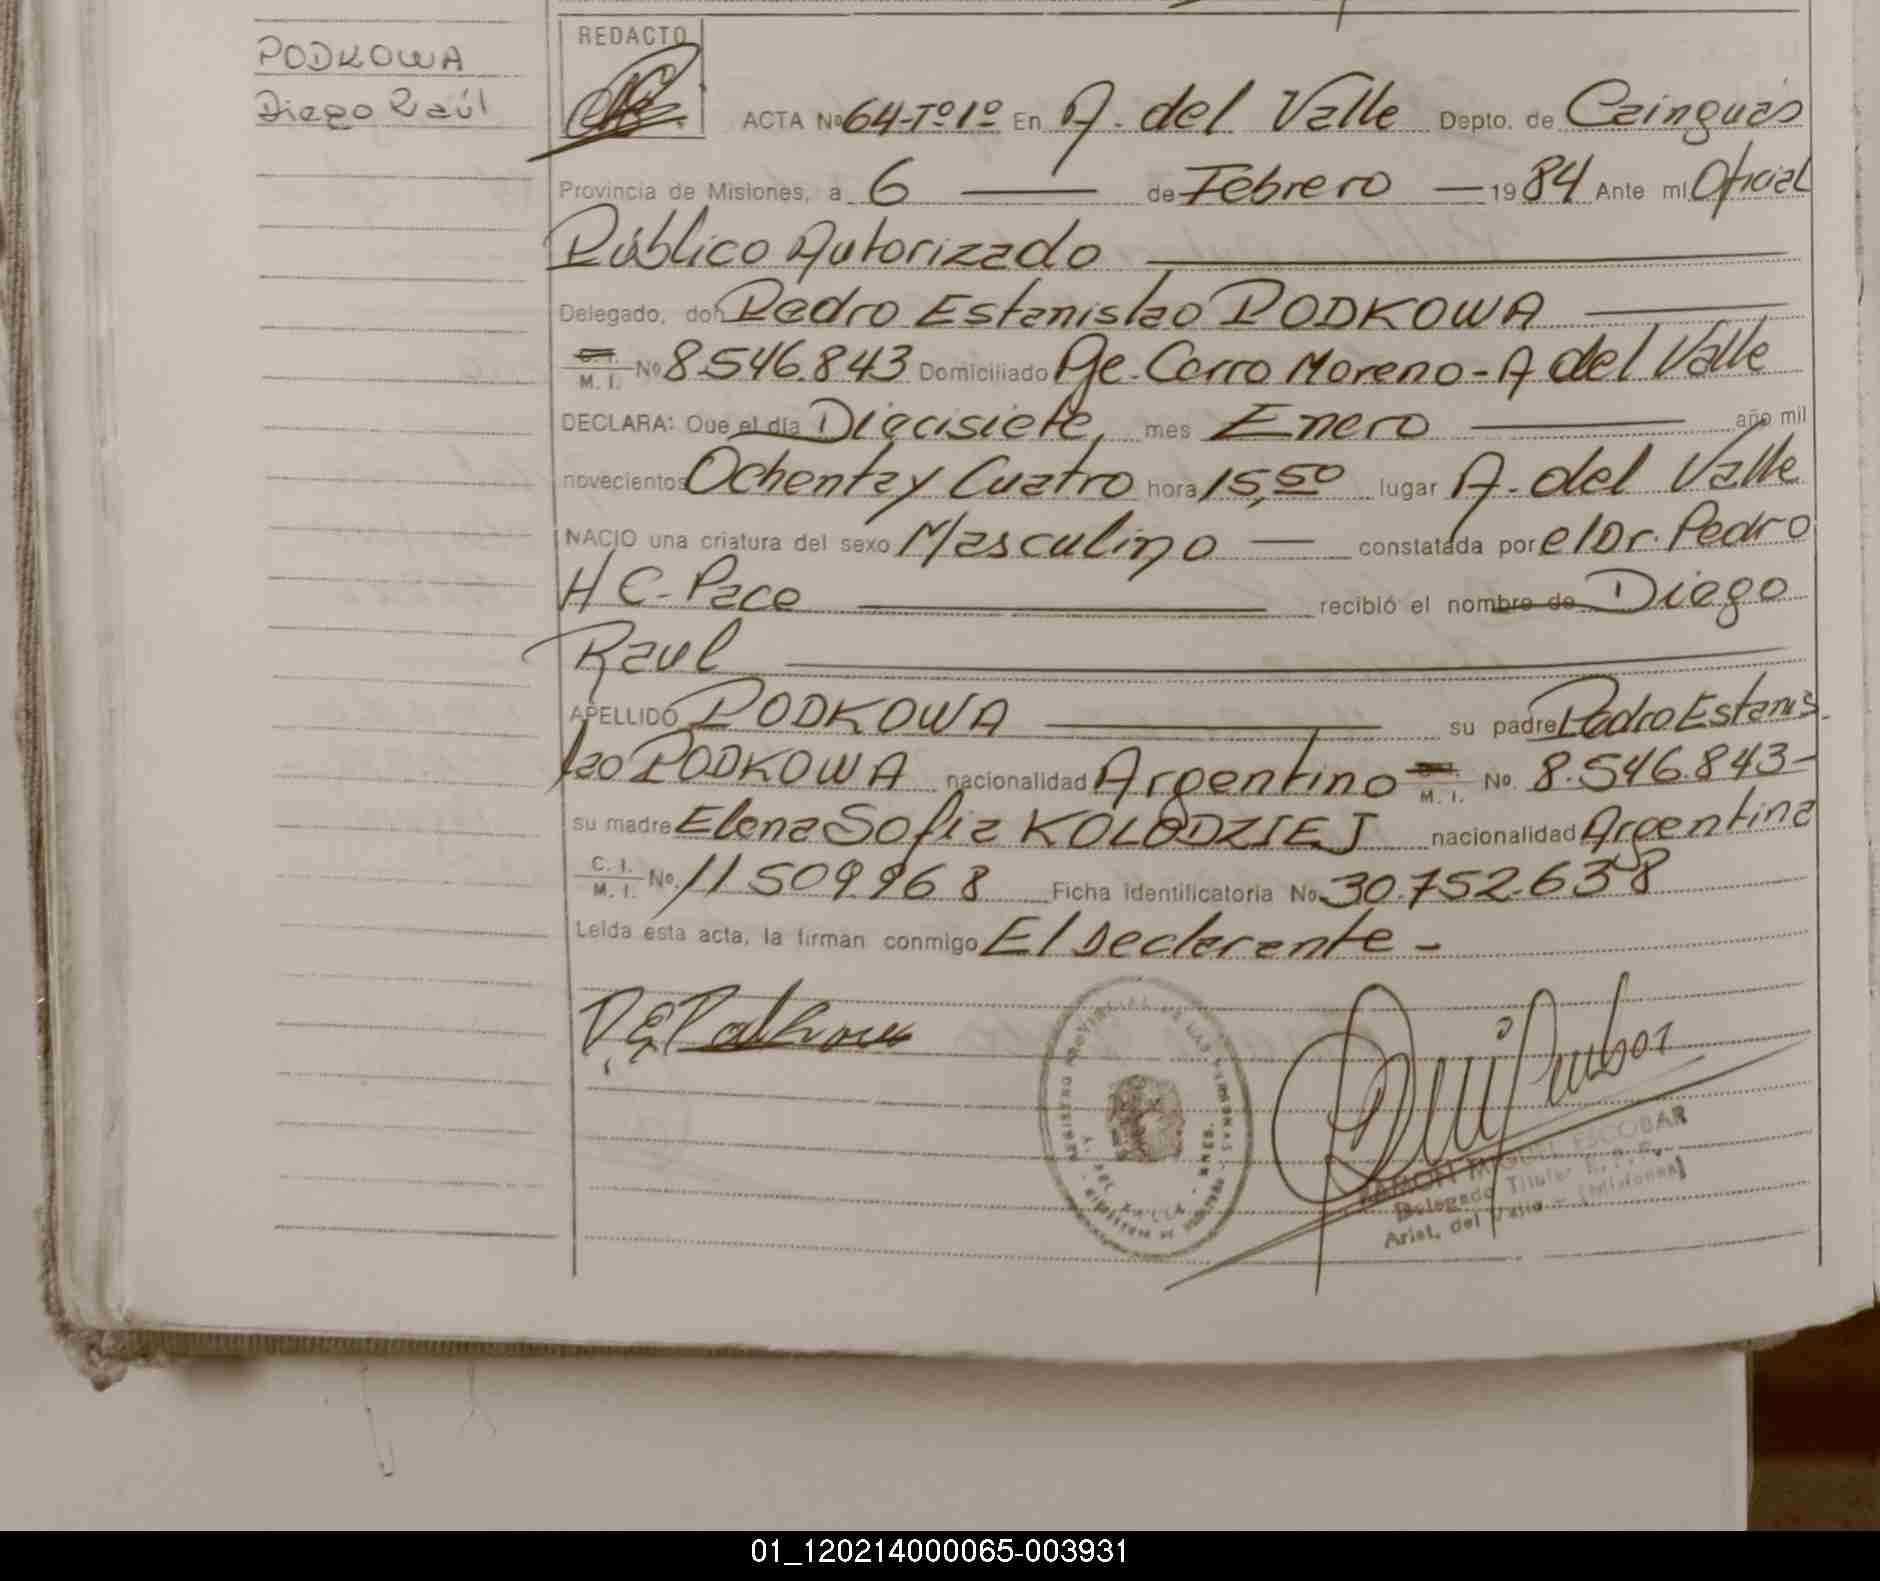 PODKOWA
Diego Raúl
REDACTO
ACTA Nº 64-Tº1º En A. del Valle Depto. de Cainguás
Provincia de Misiones, a 6 de Febrero 1984 Ante mí Oficial
Público Autorizado
Delegado, don Pedro Estanislao PODKOWA
C. I. M. I. Nº 8.546.843 Domiciliado Pje. Cerro Moreno - A del Valle
DECLARA: Que el día Diecisiete, mes Enero año mil
novecientos Ochenta y Cuatro hora 15,50 lugar A. del Valle
NACIO una criatura del sexo Masculino constatada por el Dr. Pedro
H C. Pace recibió el nombre de Diego
Raul
APELLIDO PODKOWA su padre Pedro Estanis
lao PODKOWA nacionalidad Argentino C. I. M. I. No. 8.546.843-
su madre Elena Sofia KOLODZIEJ nacionalidad Argentina
C. I. M. I. No. 11509968 Ficha identificatoria No. 30.752.638
Leída esta acta, la firman conmigo El Declarante -
REGISTRO PROVINCIAL DE LAS PERSONAS
A. DEL VALLE
RAMON MIGUEL ESCOBAR
Delegado Titular R.P.P.
Arist. del Valle - (Misiones)
01_120214000065-003931